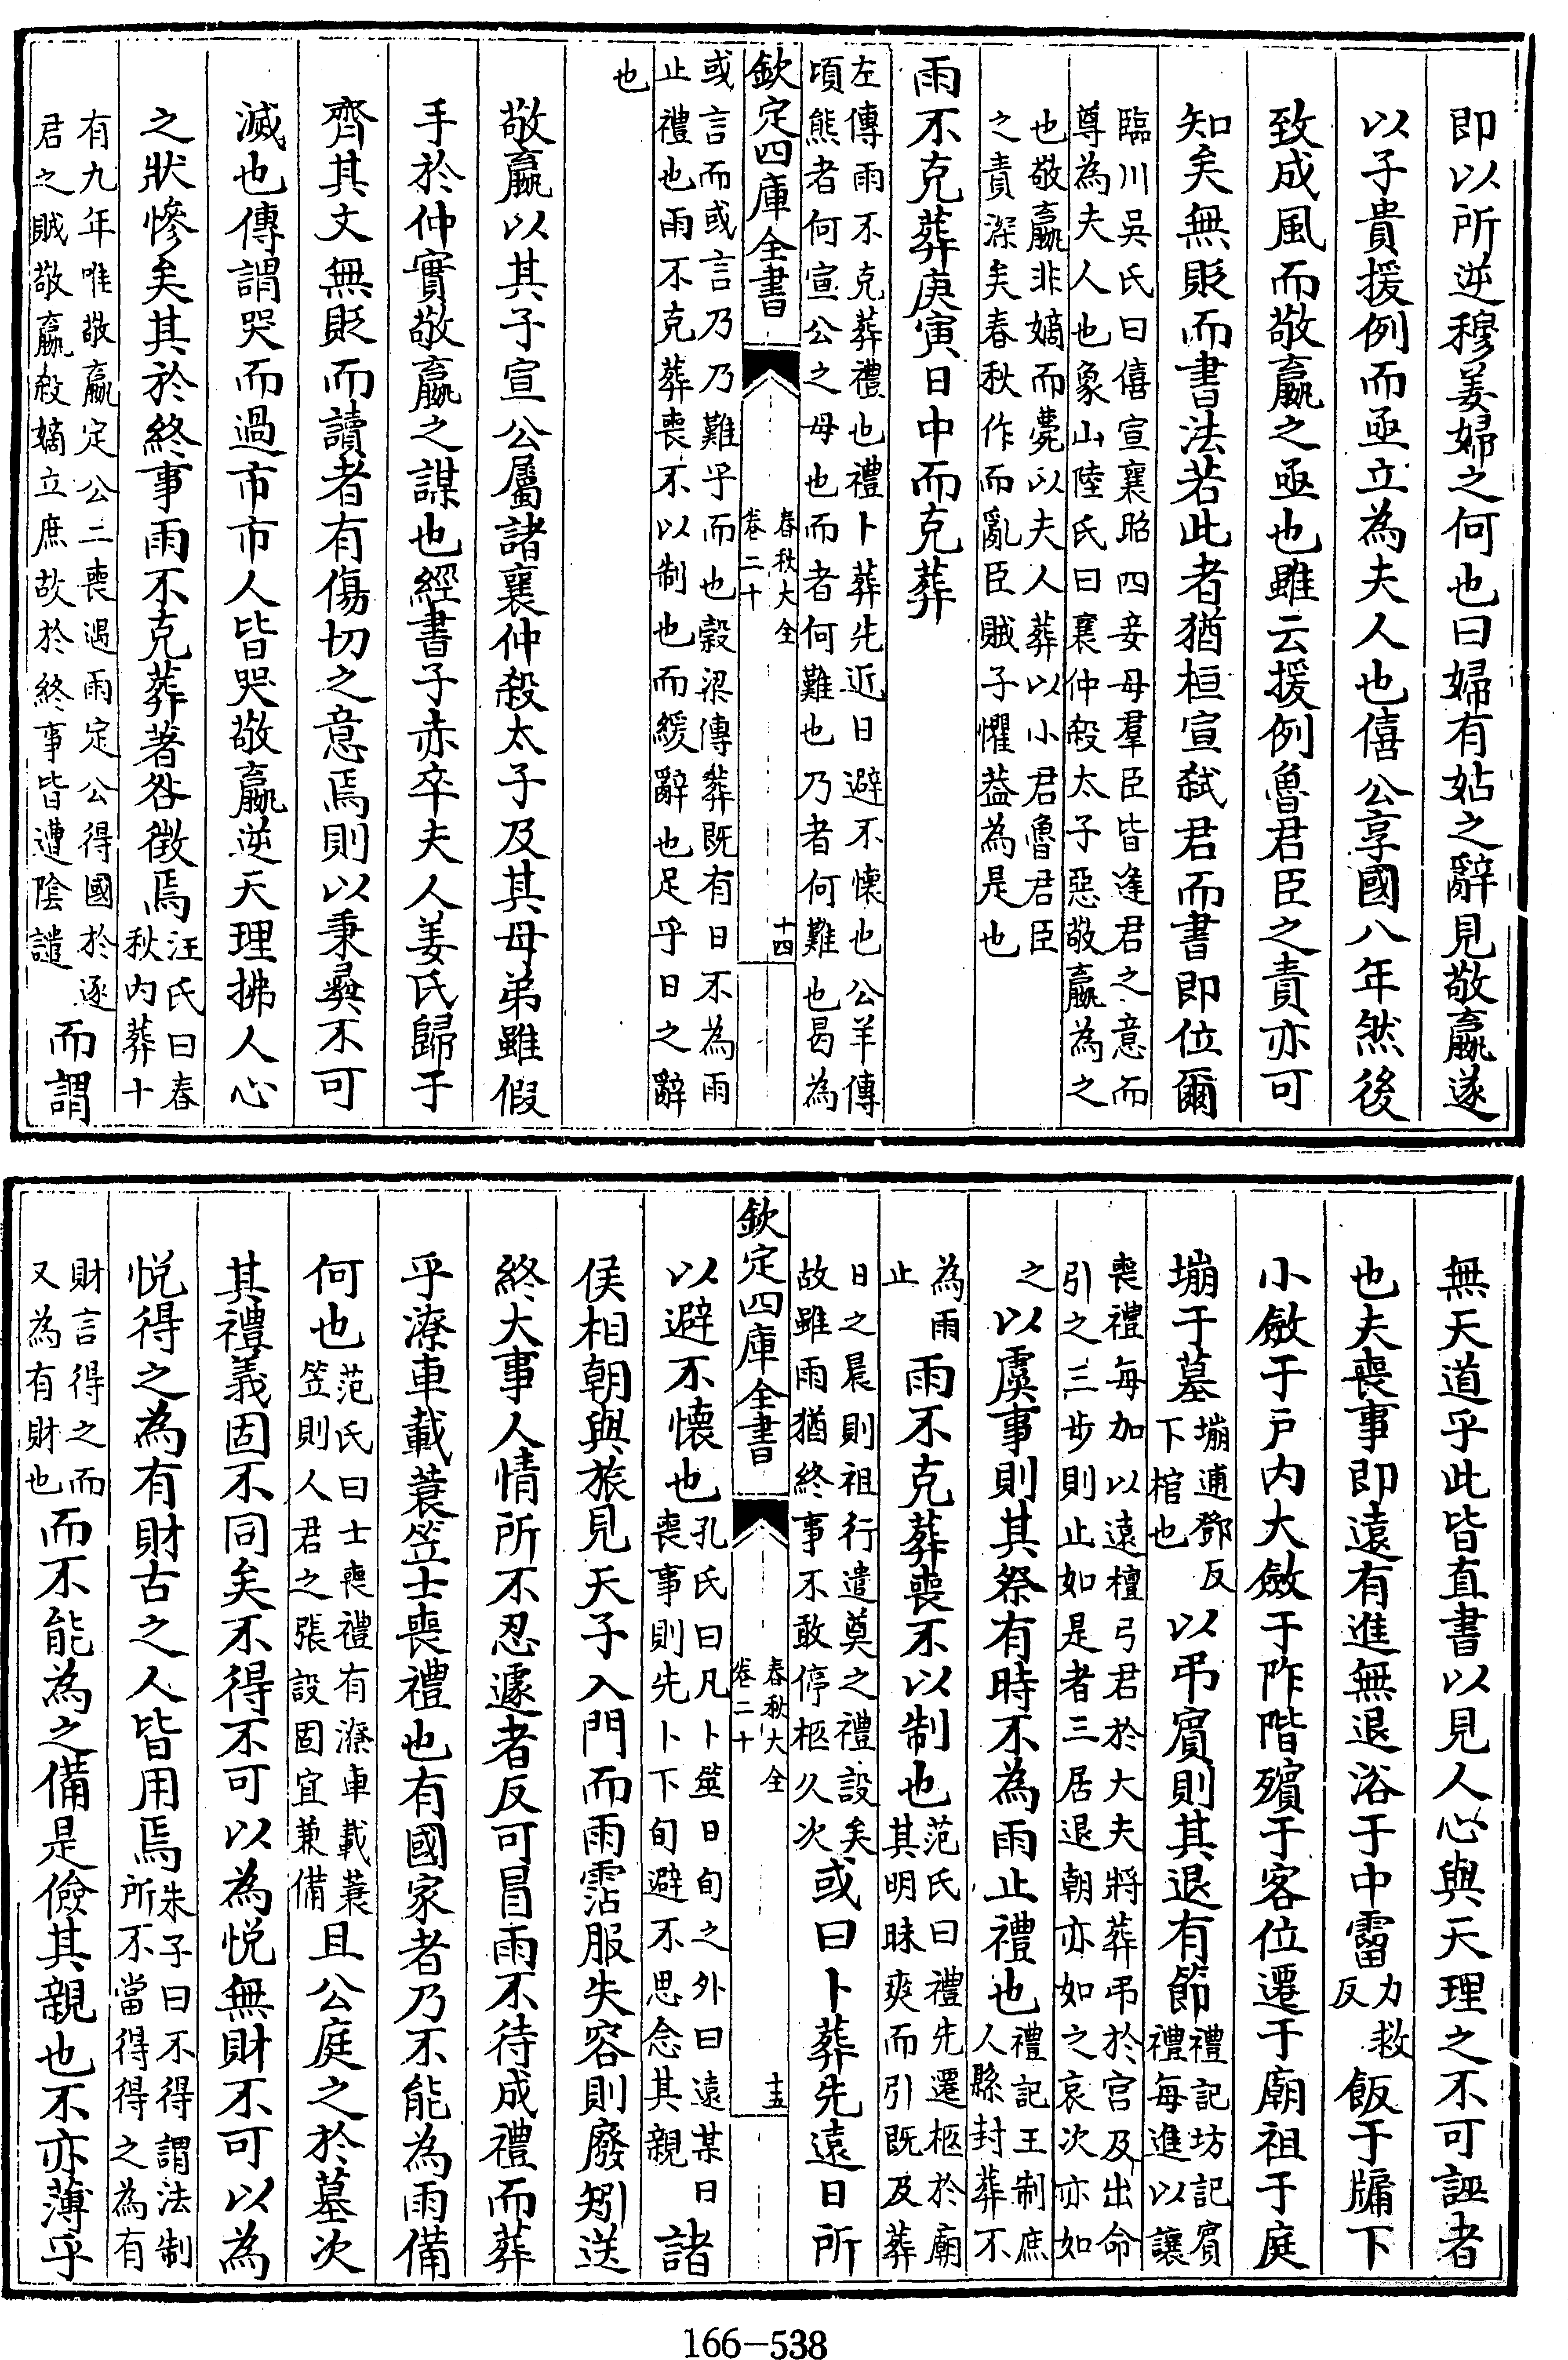 即以所逆穆姜婦之何也曰婦有姑之辭見敬嬴遂
以子貴援例而亟立為夫人也僖公享國八年然後
致成風而敬嬴之亟也雖云援例魯君臣之責亦可
知矣無貶而書法若此者猶桓宣弑君而書即位爾
臨川吳氏曰僖宣襄昭四妾母羣臣皆逢君之意而
尊為夫人也象山陸氏曰襄仲殺太子惡敬嬴為之
也敬嬴非嫡而薨以夫人葬以小君魯君臣
之責深矣春秋作而亂臣賊子懼葢為是也
雨不克葬庚寅日中而克葬
左傳雨不克葬禮也禮卜葬先近日避不懷也公羊傳
頃熊者何宣公之母也而者何難也乃者何難也曷為
欽定四庫全書
春秋大全
卷二十
十四
或言而或言乃乃難乎而也穀梁傳葬既有日不為雨
止禮也雨不克葬喪不以制也而緩辭也足乎日之辭
也
敬嬴以其子宣公屬諸襄仲殺太子及其母弟雖假
手於仲實敬嬴之謀也經書子赤卒夫人姜氏歸于
齊其文無貶而讀者有傷切之意焉則以秉彛不可
滅也傳謂哭而過市市人皆哭敬嬴逆天理拂人心
之狀慘矣其於終事雨不克葬著咎徴焉汪氏曰春
秋内葬十
有九年唯敬嬴定公二喪遇雨定公得國於逐
君之賊敬嬴殺嫡立庶故於終事皆遭陰譴而謂
無天道乎此皆直書以見人心與天理之不可誣者
也夫喪事即遠有進無退浴于中霤力救
反飯于牖下
小斂于户内大斂于阼階殯于客位遷于廟祖于庭
塴于墓塴逋鄧反
下棺也以弔賓則其退有節禮記坊記賓
禮每進以讓
喪禮每加以遠檀弓君於大夫將葬弔於宫及出命
引之三步則止如是者三居退朝亦如之哀次亦如
之以虞事則其祭有時不為雨止禮也禮記王制庶
人縣封葬不
為雨
止雨不克葬喪不以制也范氏曰禮先遷柩於廟
其明昧爽而引既及葬
日之晨則祖行遣奠之禮設矣
故雖雨猶終事不敢停柩久次或曰卜葬先遠日所
欽定四庫全書
春秋大全
卷二十
十五
以避不懷也孔氏曰凡卜筮日旬之外曰遠某日
喪事則先卜下旬避不思念其親諸
侯相朝與旅見天子入門而雨霑服失容則廢矧送
終大事人情所不忍遽者反可冒雨不待成禮而葬
乎潦車載蓑笠士喪禮也有國家者乃不能為雨備
何也范氏曰士喪禮有潦車載蓑
笠則人君之張設固宜兼備且公庭之於墓次
其禮義固不同矣不得不可以為悦無財不可以為
悦得之為有財古之人皆用焉朱子曰不得謂法制
所不當得得之為有
財言得之而
又為有財也而不能為之備是儉其親也不亦薄乎
166—538